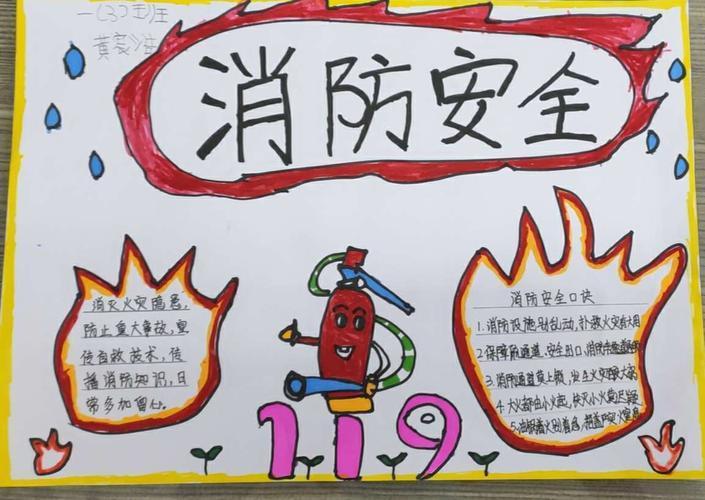 一(3)班
黄
消防安全
消灭火灾隐患,
防止重大事故,宣
传自救技术,传
播消防知识,日
常多加留心。
消防安全口诀
1.消防设施别乱动,扑救火灾有大用
2.保障通道,安全出口,消防
3.消防通道莫上锁,发生火灾
4.大火都由小火起,
5.着火别着急,
119